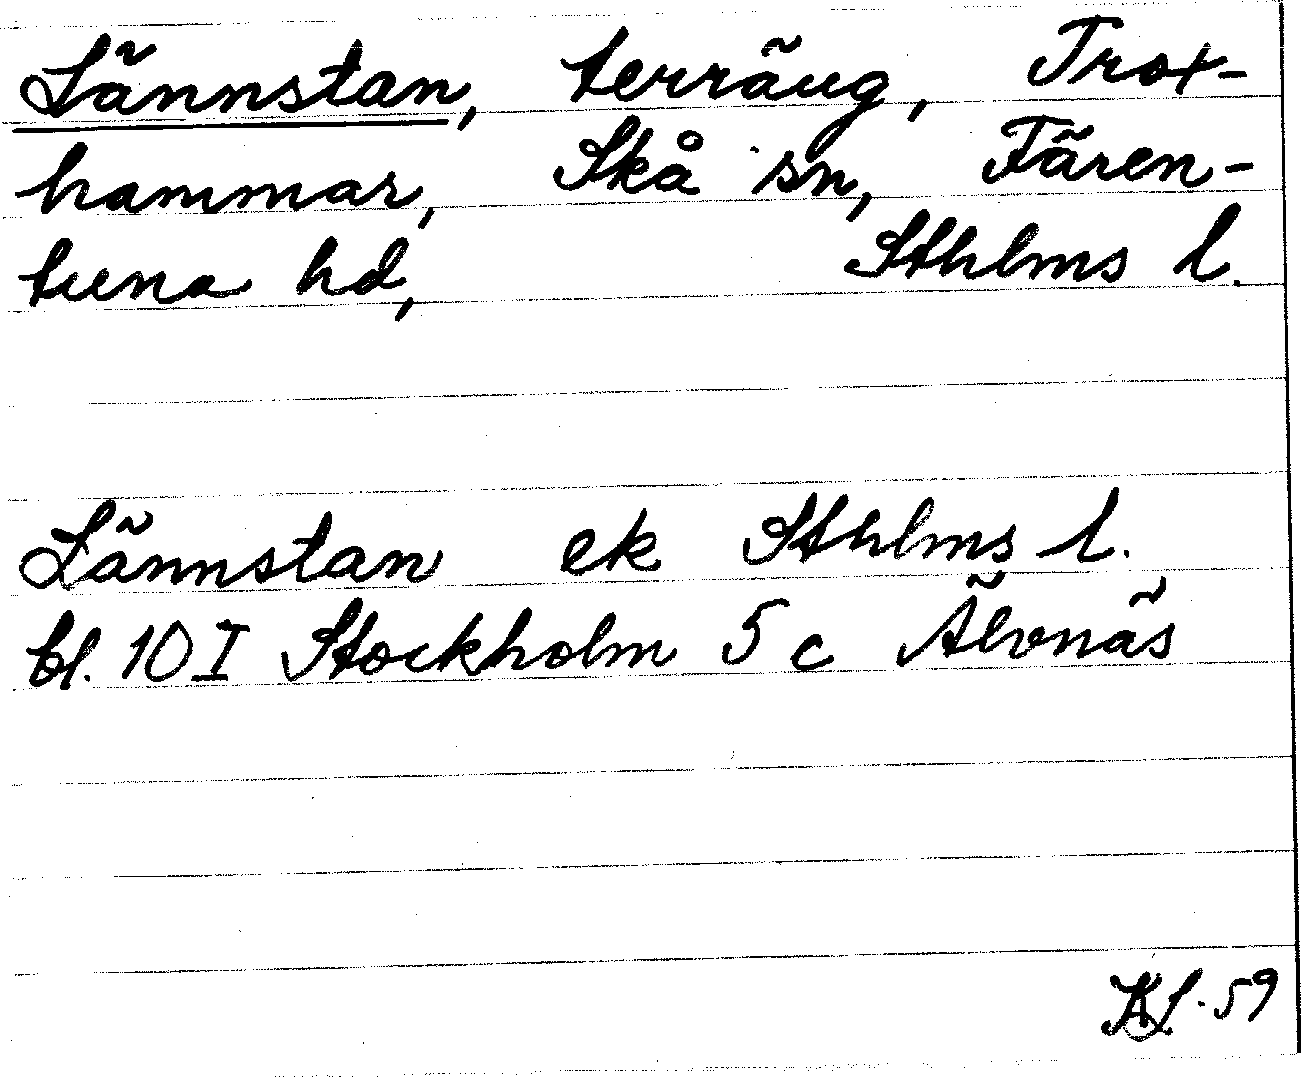 Lännstan, terräng, Trox-
hammar, Skå sn, Fären-
tuna hd, Sthlms l.
Lännstan ek Sthlms l.
bl. 10 I Stockholm 5 c Älvnäs
KL-59